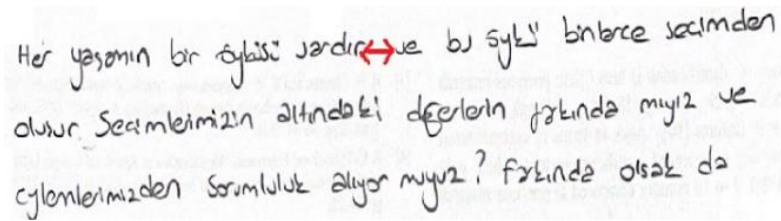 Her yaşamın bir öyküsü vardır ve bu öykü binlerce seçimden
oluşur. Seçimlerimizin altındaki değerlerin farkında mıyız ve
eylemlerimizden sorumluluk alıyor muyuz? Farkında olsak da